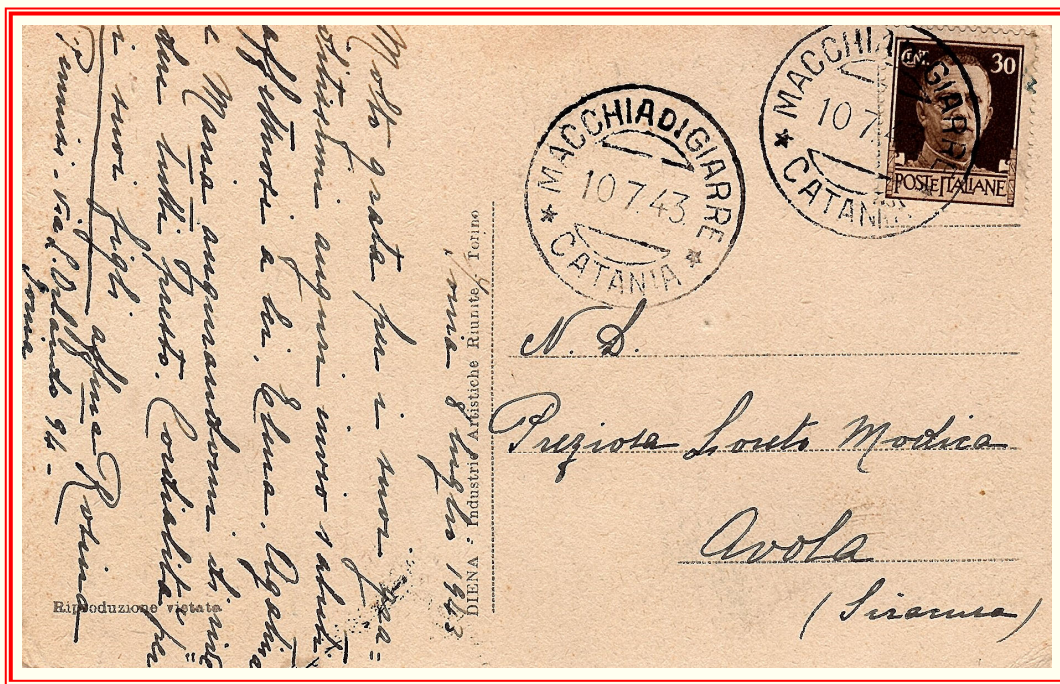 MACCHIA DI GIARRE
10.7.43
* CATANIA *
MACCHIA DI GIARRE
10.7.
* CATANIA
CENT. 30
POSTE ITALIANE
N. D.
Preziosa Loreto Modica
Avola
(Siracusa)
DIENA - Industrie Artistiche Riunite, Torino
Riproduzione vietata
8 luglio 1943
Molto grata per i suoi gra=
ditissimi auguri invio saluti
affettuosi a lei, Elena, Agatina
e Maria augurandomi di rive=
der tutti presto. Cordialità per
i suoi figli affma Rosina
94 -